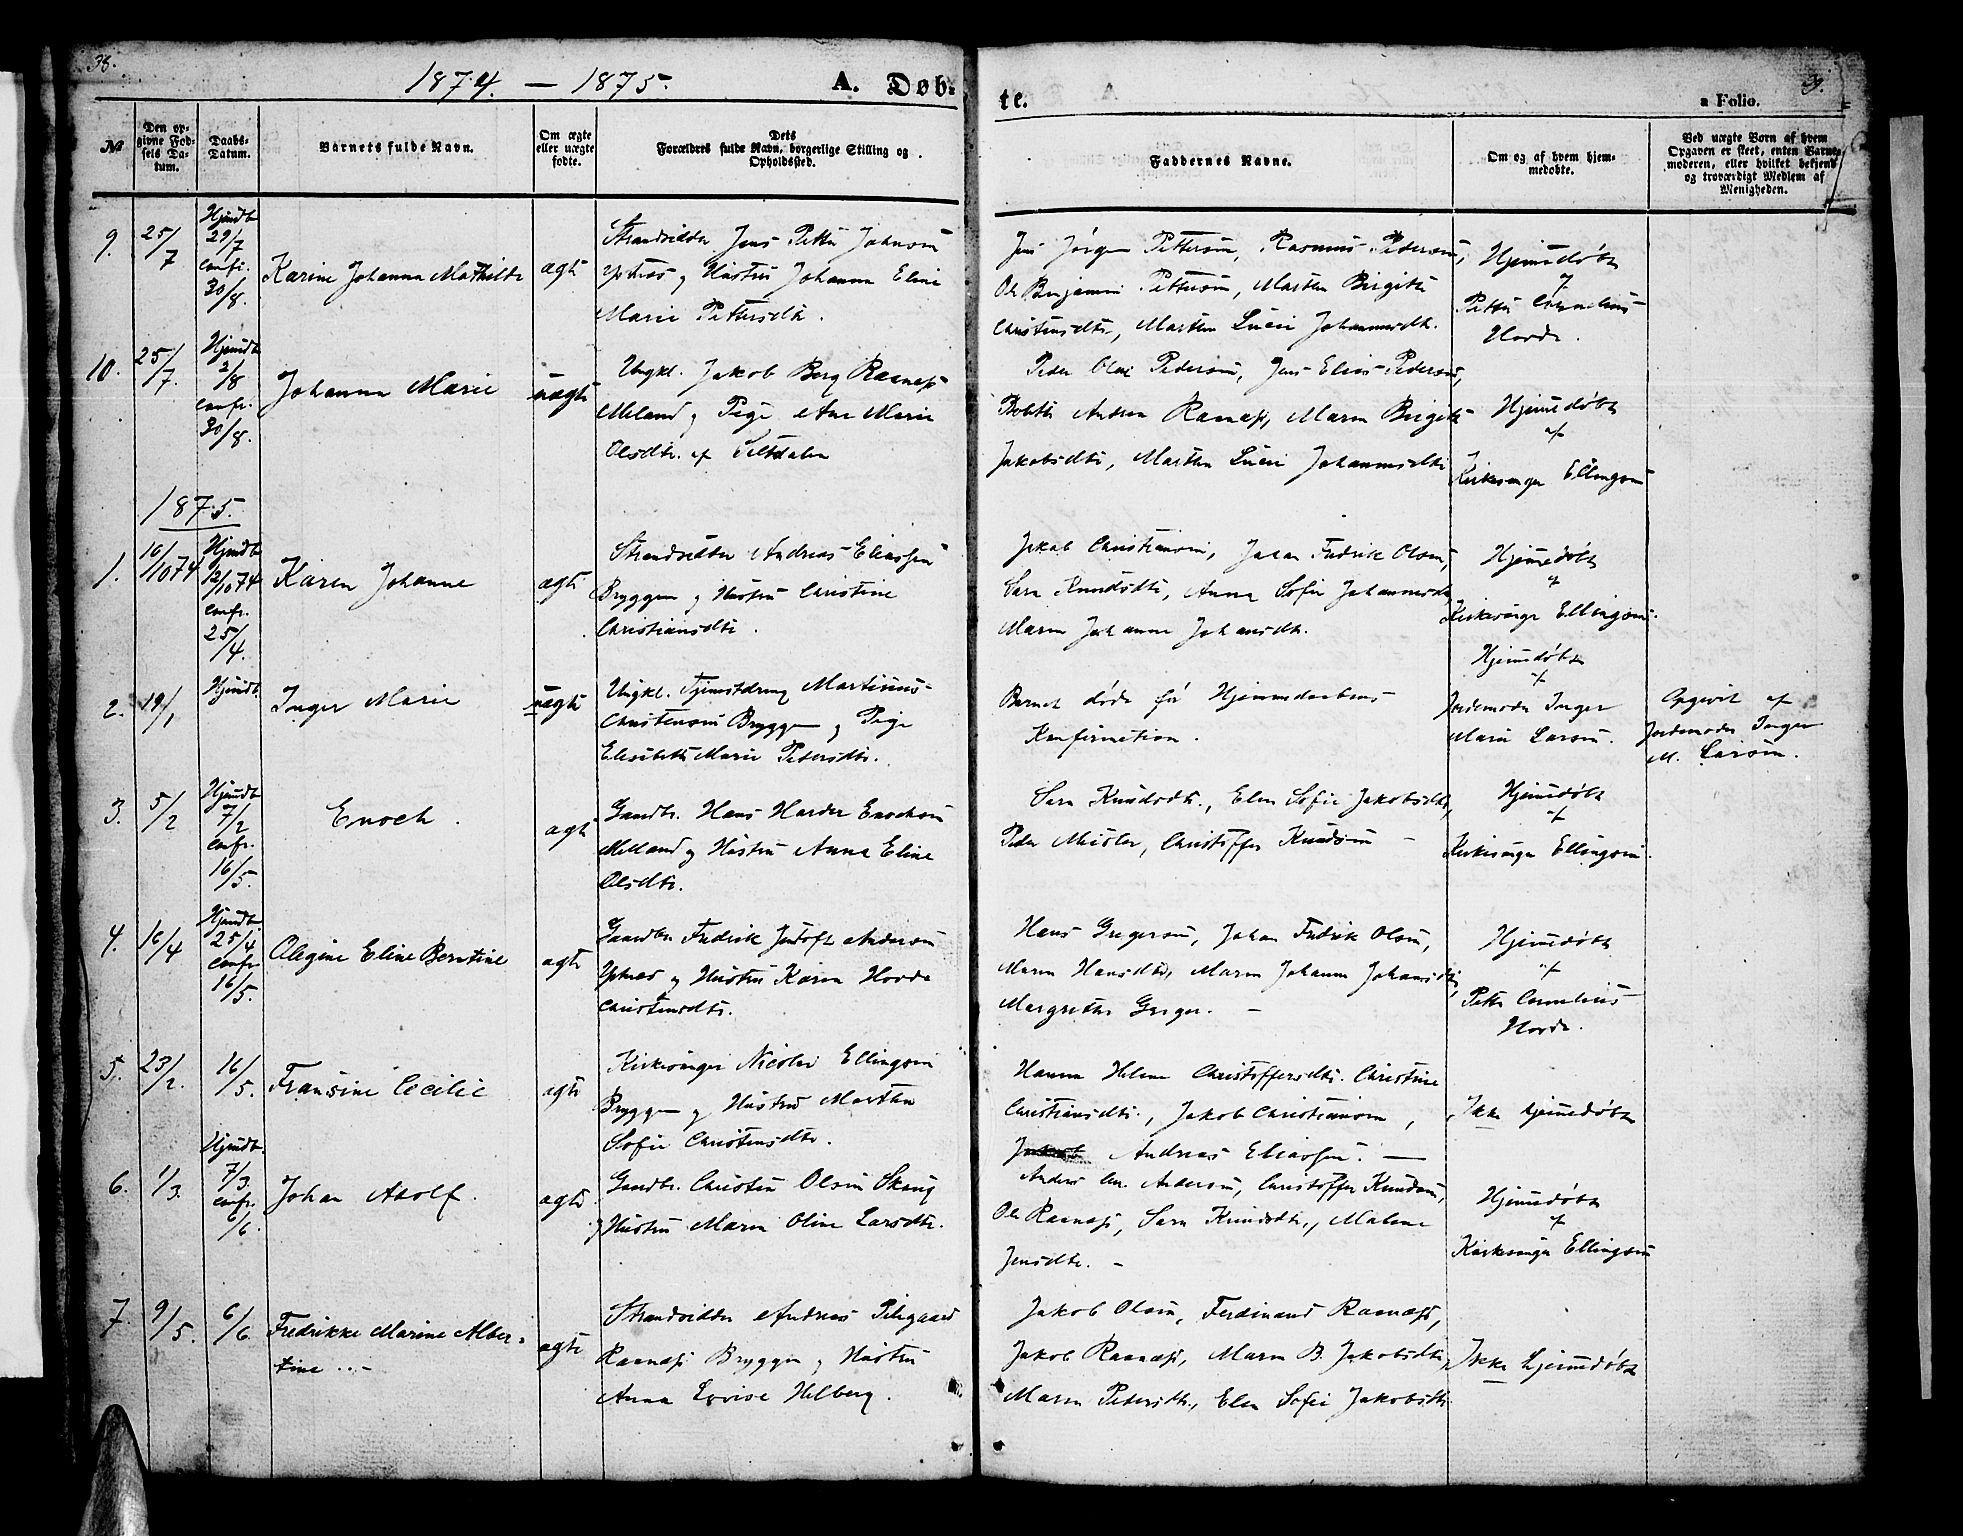 38.
1874. — 1875.
A. Døb-
te.
39.
a Folio.
№
Den op-
givne Fød-
sels Da-
tum.
Daabs-
Datum.
Barnets fulde Navn.
Om ægte
eller uægte
fødte.
Dets
Forældres fulde Navn, borgerlige Stilling og
Opholdssted.
Faddernes Navne.
Om og af hvem hjem-
medøbte.
Ved uægte Børn af hvem
Opgaven er skeet, enten Barne-
moderen, eller hvilket bekjend
og troværdigt Medlem af
Menigheden.
9.
25/7
Hjemdb.
29/7
confr.
30/8.
Karine Johanna Mathilde
ægte
Strandsidder Jens Petter Johnsen
Ystnes og Hustru Johanna Eline
Marie Pettersdtr.
Jens Jørgen Pettersen, Rasmus Pedersen,
Ole Benjamin Pettersen, Martha Birgitte
Christensdtr, Martha Lucie Johannesdtr.
Hjemmedøbt
af
Petter Cornelius
Horde.
10.
25/7.
Hjemdb.
2/8
confr.
30/8.
Johanna Marie
uægte
Ungkl. Jakob Berg Raanæss
Meland og Pige Ane Marie
Olsdtr. af Saltdalen
Peder Olai Pedersen, Jens Elias Pedersen,
Bolette Andrea Raanæss, Maren Birgitte
Jakobsdtr, Martha Lucie Johannesdtr
Hjemmedøbt
af
Kirkesanger Ellingsen
1875.
1.
10/1074
Hjemdb.
12/1074
confr.
25/4.
Karen Johanne
ægte
Strandsidder Andreas Eliassen
Bryggen og Hustru Christine
Christiansdtr.
Jakob Christiansen, Johan Fredrik Olsen,
Sara Knudsdtr, Anna Sofie Johannesdtr,
Maren Johanne Johansdtr.
Hjemmedøbt
af
Kirkesanger Ellingsen.
2.
19/1
Hjemdb.
Inger Marie
uægte
Ungkl. Tjenestdreng Martinus
Christensen Bryggen og Pige
Elisabeth Marie Pedersdtr.
Barnet døde før Hjemmedaabens
Konfirmation.
Hjemmedøbt
af
Jordemoder Inger
Marie Larsen.
Opgivet af
Jordemoder Inger
M. Larsen.
3.
5/2
Hjemdb.
7/2
confr.
16/5.
Enoch.
ægte
Gaardbr. Hans Harder Enochsen
Melland og Hustru Anna Eline
Olsdtr.
Sara Knudsdtr., Elen Sofie Jakobsdtr,
Peder Meisler, Christoffer Knudsen —
Hjemmedøbt
af
Kirkesanger Ellingsen.
4.
16/4
Hjemdb.
25/4
confr.
16/5.
Olegine Eline Berntine
ægte
Gaardbr Fredrik Andersen
Ystnes og Hustru Karen Horde
Christensdtr.
Hans Gregersen, Johan Fredrik Olsen,
Maren Hansdtr, Maren Johanna Johansdtr,
Margrethe Greger. —
Hjemmedøbt
af
Petter Cornelius
Horde.
5.
23/2.
16/5.
Fransine Cecilie
ægte
Kirkesanger Nicolai Ellingsen
Bryggen og Hustru Martha
Sofie Christensdtr.
Hanna Helene Christoffersdtr. Christine
Christiansdtr., Jakob Christiansen,
Andreas Eliassen. —
Ikke hjemmedøbt
6.
1/3.
Hjemdb.
7/3.
confr.
6/6.
Johan Adolf.
ægte
Gaardbr. Christen Olsen Skaug
og Hustru Maren Oline Larsdtr.
Anders Andersen, Christoffer Knudsen,
Ole Raanæss, Sara Knudsdtr., Malene
Jensdtr. —
Hjemmedøbt
af
Kirkesanger Ellingsen
7.
9/5.
6/6.
Fredrikke Marine Alber-
tine
ægte
Strandsidder Andreas Pilegaard
Raanæss Bryggen og Hustru
Anna Lovise Helberg.
Jakob Olsen, Ferdinand Raanæss,
Jakob Raanæss, Maren B. Jakobsdtr,
Maren Pedersdtr., Elen Sofie Jakobsdtr.
Ikke hjemmedøbt